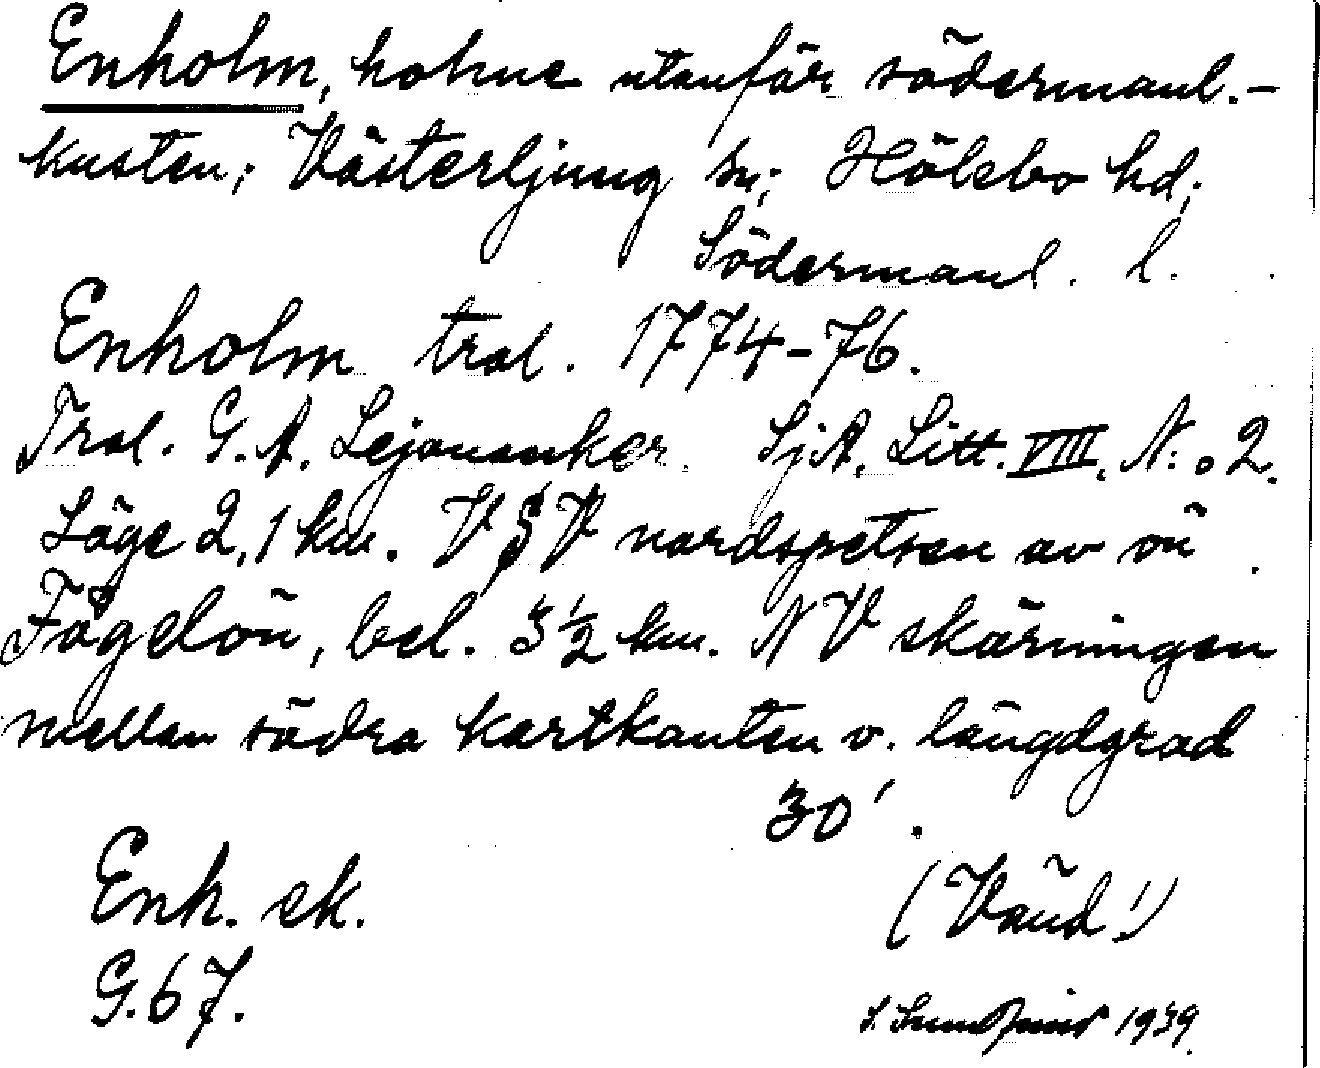 Enholm, holme utanför södermanl.-
kusten; Västerljung sn; Hölebo hd;
Södermanl. l.
Enholm trol. 1774-76.
Trol. G. A. Lejonanker. SjA. Litt. VIII. N:o 2.
Läge 2,1 km. V § V nordspetsen av ön
Fågelön, bel. 3 1/2 km. NV skärningen
mellan södra kartkanten o. längdgrad
30'.
Enh. ek.
(Vänd!)
G. 67.
S. 1939.